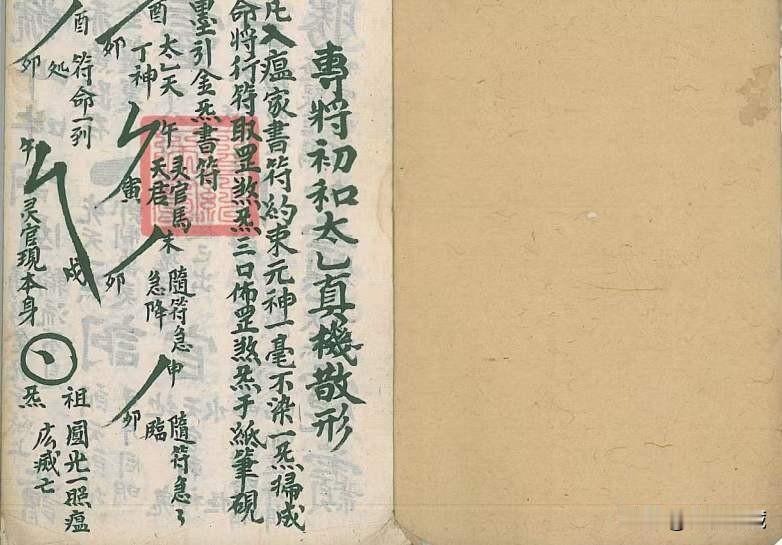 專將初和太乚真機散形
凡入瘟家書符約束元神一毫不染一炁掃成
命將行符取罡煞炁三口佈罡煞炁于紙筆硯
墨引金炁書符
酉 太乚天 午 灵官馬 未 隨符急 申 隨符急々
卯 丁神 寅 天君 卯 急降 卯 臨
酉 符命一列
卯 処
午 戌 灵官現本身
祖圓光一照瘟
炁 広滅亡